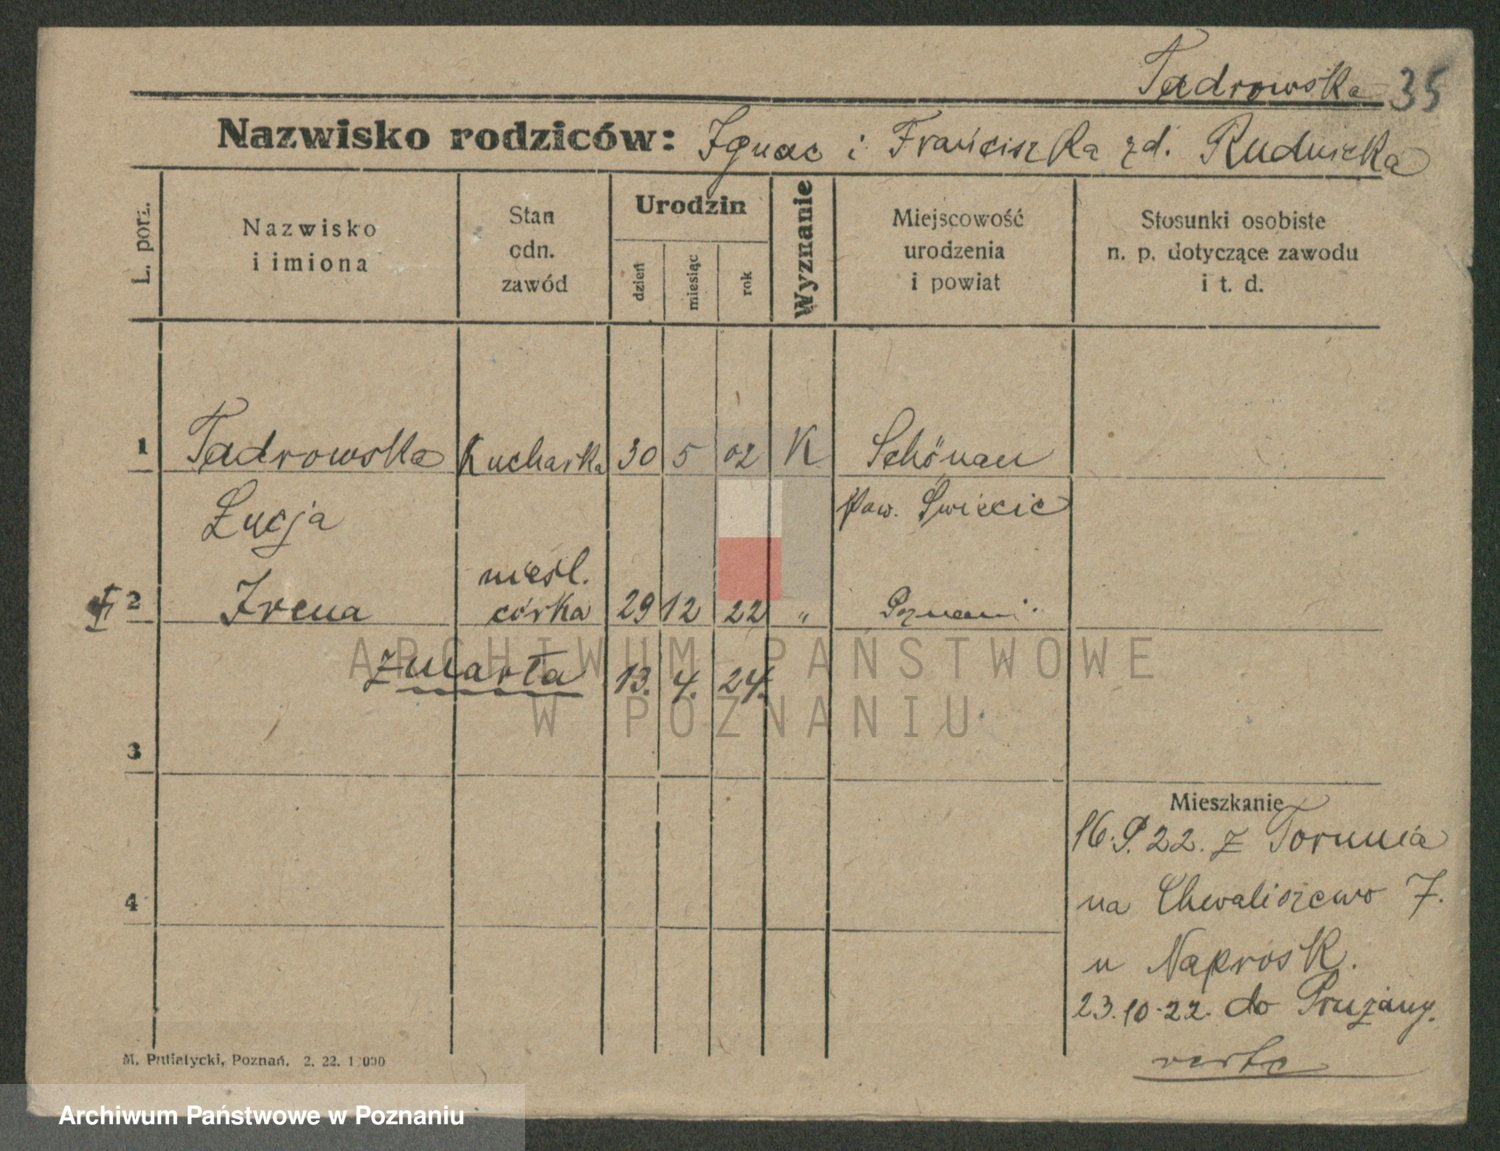 Tadrowska 35
Nazwisko rodziców: Ignac i Franciszka zd. Rudnicka
L. porz.
Nazwisko
i imiona
Stan
cdn.
zawód
Urodzin
dzień
miesiąc
rok
Wyznanie
Miejscowość
urodzenia
i powiat
Stosunki osobiste
n. p. dotyczące zawodu
i t. d.
1 Tadrowska Kucharka 30 5 02 K Schönau
Łucja pow. Świecie
nieśl.
2 Irena córka 29 12 22 „ Poznań
zmarła 13. 4. 24.
3
Mieszkanie
16.9.22. z Torunia
4 na Chwaliszewo 7.
u Naprosk.
23.10.22. do Prużany.
verte
M. Putiatycki, Poznań. 2. 22. 1 000
ARCHIWUM PAŃSTWOWE
W POZNANIU
Archiwum Państwowe w Poznaniu